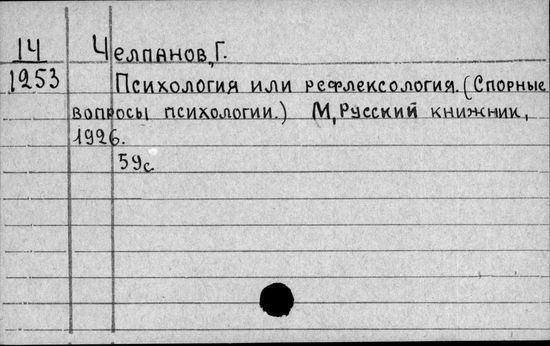 14
1253
Челпанов, Г.
Психология или рефлексология. (Спорные
вопросы психологии.) М, Русский книжник,
1926.
59с.